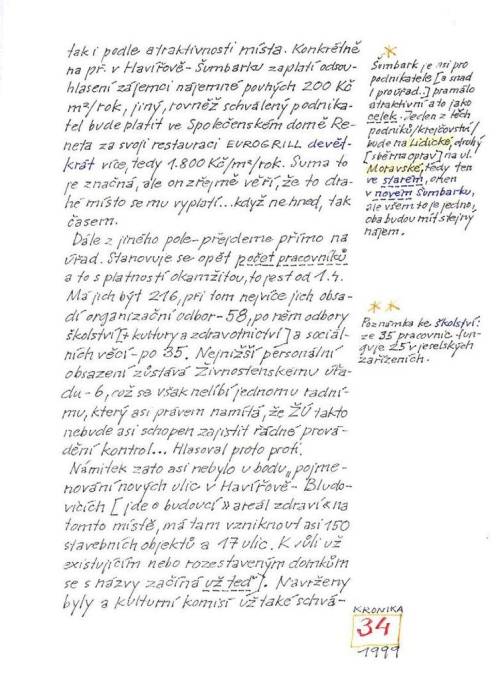 tak i podle atraktivnosti místa. Konkrétně
na př. v Havířově-Šumbarku zaplatí odsou-
hlasení zájemci nájemné pouhých 200 Kč
m²/rok, jiný, rovněž schválený podnika-
tel bude platit ve Společenském domě Re-
neta za svoji restauraci EUROGRILL devět-
krát více, tedy 1.800 Kč/m²/rok. Suma to
je značná, ale on zřejmě věří, že to dra-
hé místo se mu vyplatí...když ne hned, tak
časem.
Dále z jiného pole-přejdeme přímo na
úřad. Stanovuje se opět počet pracovníků
a to s platností okamžitou, to jest od 1.4.
Má jich být 216, při tom nejvíce jich obsa-
dí organizační odbor-58, po něm odbory
školství [+ kultury a zdravotnictví] a sociál-
ních věcí-po 35. Nejnižší personální
obsazení zůstává Živnostenskému úřa-
du-6, což se však nelíbí jednomu radní-
mu, který asi právem namítá, že ŽÚ takto
nebude asi schopen zajistit řádné prová-
dění kontrol... Hlasoval proto proti.
Námitek zato asi nebylo u bodu „pojme-
nování nových ulic v Havířově-Bludo-
vicích [jde o budoucí »areál zdraví« na
tomto místě, má tam vzniknout asi 150
stavebních objektů a 17 ulic. Kvůli už
existujícím nebo rozestaveným domkům
se s názvy začíná už teď]. Navrženy
byly a kulturní komisí už také schvá-
*
Šumbark je asi pro
podnikatele [a snad
i pro úřad..] pramálo
atraktivní a to jako
celek. Jeden z těch
podniků/krejčovství/
bude na Lidické, druhý
[sběrna oprav] na ul.
Moravské, tedy ten
ve starém, onen
v novém Šumbarku,
ale všem to je jedno,
oba budou mít stejný
nájem.
**
Poznámka ke školství:
ze 35 pracovnic fun-
guje 25 v jeselských
zařízeních.
KRONIKA
34
1999